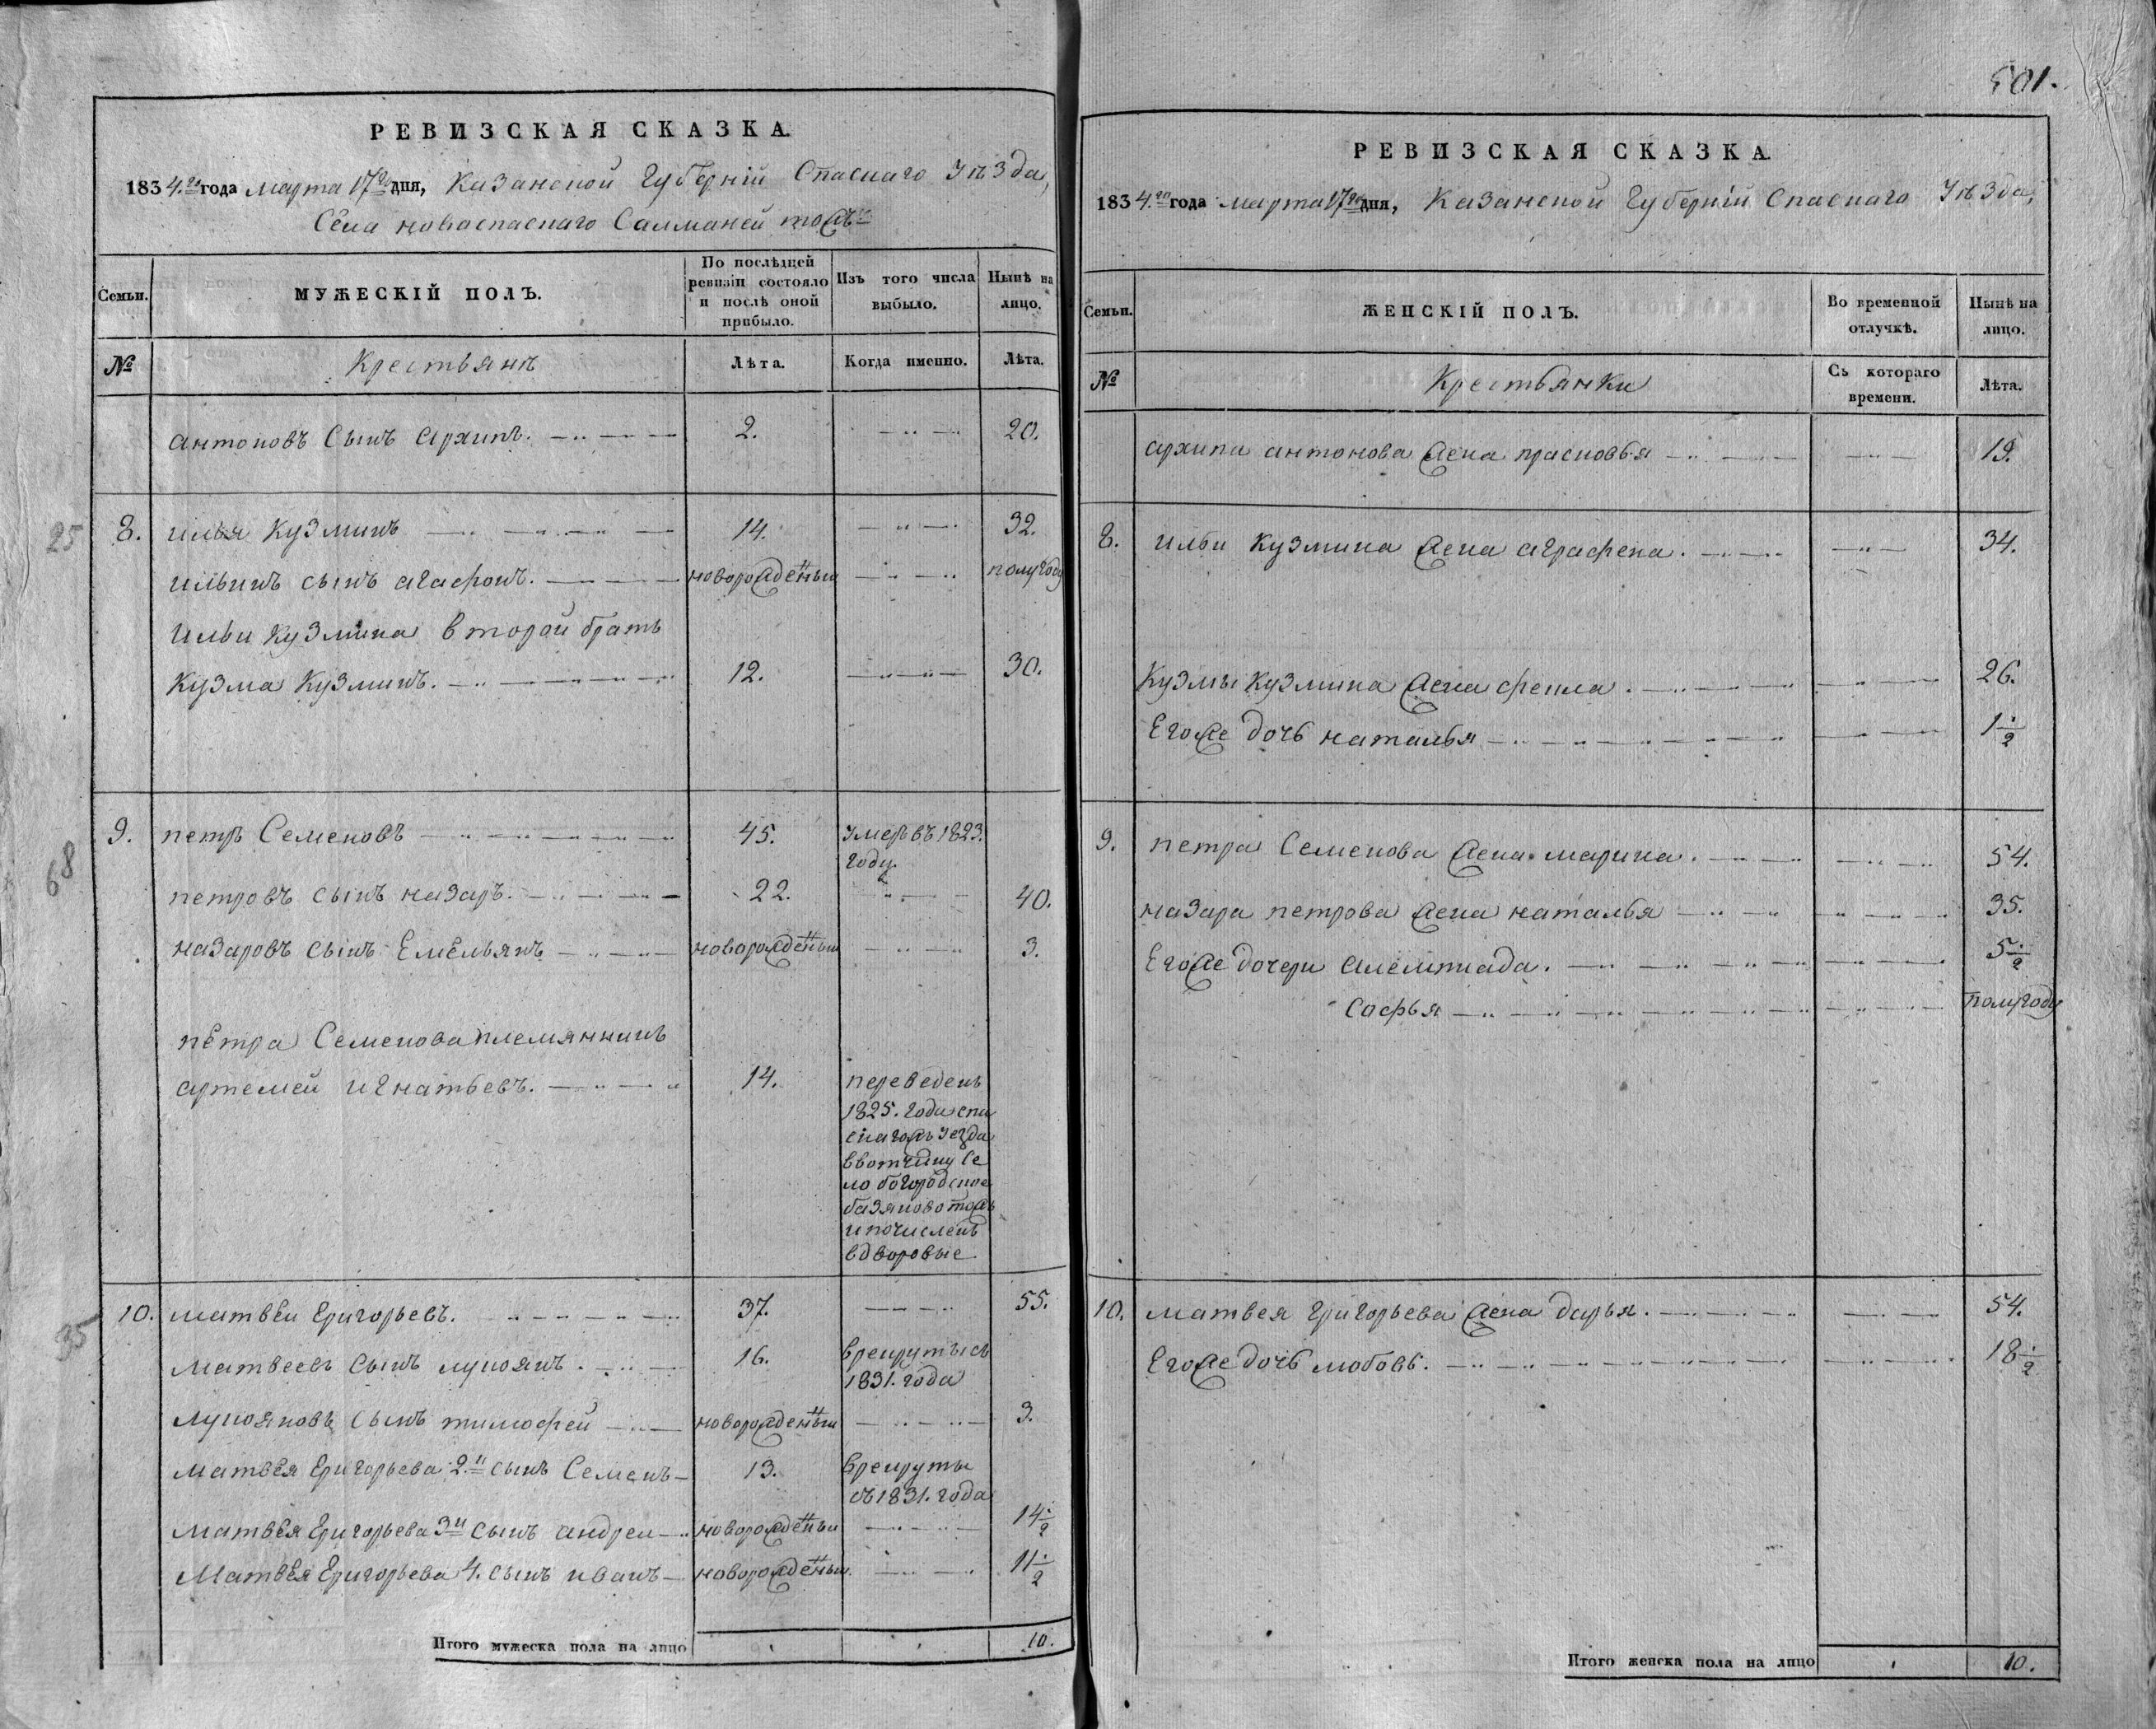 РЕВИЗСКАЯ СКАЗКА.
1834.го года марта 17го дня, Казанской Губернiи Спаскаго Уѣзда,
Села новаспаскаго Салманей тожъ
Семьи. МУЖЕСКIЙ ПОЛЪ. По послѣдней ревизiи состояло и послѣ оной прибыло. Изъ того числа выбыло. Нынѣ на лицо.
№ Крестьянъ Лѣта. Когда именно. Лѣта.
антоновъ Сынъ архипъ. 2. 20.
25 8. илья Кузминъ 14. 32.
ильинъ сынъ агафонъ. новорожденыи полугоду
Ильи Кузмина второй братъ
Кузма Кузминъ. 12. 30.
68 9. петръ Семеновъ 45. Умеръ въ 1823.
году.
петровъ сынъ назаръ. 22. 40.
назаровъ сынъ Емельянъ новорожденыи 3.
петра Семенова племянникъ
артемей игнатьевъ. 14. переведенъ
1825. года спа
скагожъ уезда
ввотчину Се
ло богородское
базяково тожъ
и почисленъ
вдворовые
35 10. матвеи Григорьевъ. 37. 55.
матвеевъ сынъ лукоянъ. 16. врекруты съ
1831. года
лукояновъ сынъ тимофей новорожденыи 3.
матвея Григорьева 2й сынъ Семенъ 13. врекруты
съ 1831. года
матвея Григорьева 3й сынъ андреи новорожденыи 14 1/2
Матвея Григорьева 4. сынъ иванъ новорожденыи 11 1/2
Итого мужеска пола на лицо 10.
501.
РЕВИЗСКАЯ СКАЗКА.
1834.го года марта 17го дня, Казанской Губернiи Спаскаго Уѣзда,
Семьи. ЖЕНСКIЙ ПОЛЪ. Во временной отлучкѣ. Нынѣ на лицо.
№ Крестьянки Съ котораго времени. Лѣта.
архипа антонова жена прасковья 19.
8. ильи Кузмина жена аграфена. 34.
Кузмы Кузмина жена фекла. 26.
Егоже дочь наталья 1 1/2
9. петра Семенова жена марина. 54.
назара петрова жена наталья 35.
Егоже дочери алемпиада. 5 1/2
Софья полугоду
10. матвея григорьева жена дарья. 54.
Егоже дочь любовь. 18 1/2
Итого женска пола на лицо 10.